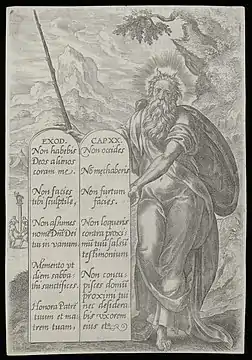 EXOD.
Non habebis
Deos alienos
coram me.
Non facies
tibi sculptile,
Non assumes
nomē Dni Dei
tui in vanum.
Memento ut
diem sabba-
ti sanctifices.
Honora Patrē
tuum et ma
trem tuam.
CAP. XX.
Non occides
Nō mechaberis
Non furtum
facies.
Non loqueris
contra proxi
mū tuū falsū
testimonium
Non concu-
pisces domū
proximi tui
nec desidera
bis vxorem
eius etc.